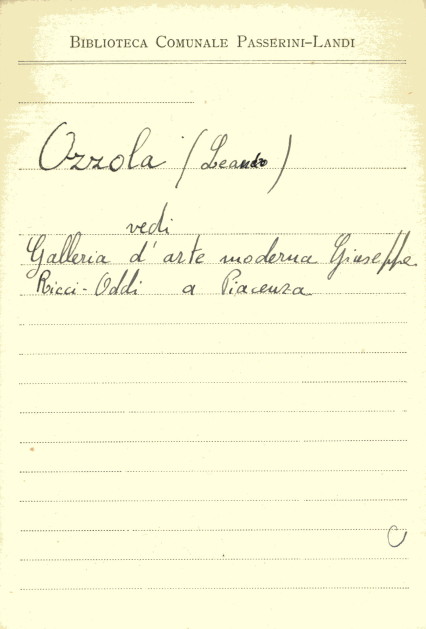 BIBLIOTECA COMUNALE PASSERINI-LANDI
Ozzola (Leandro)
vedi
Galleria d'arte moderna Giuseppe
Ricci-Oddi a Piacenza
C